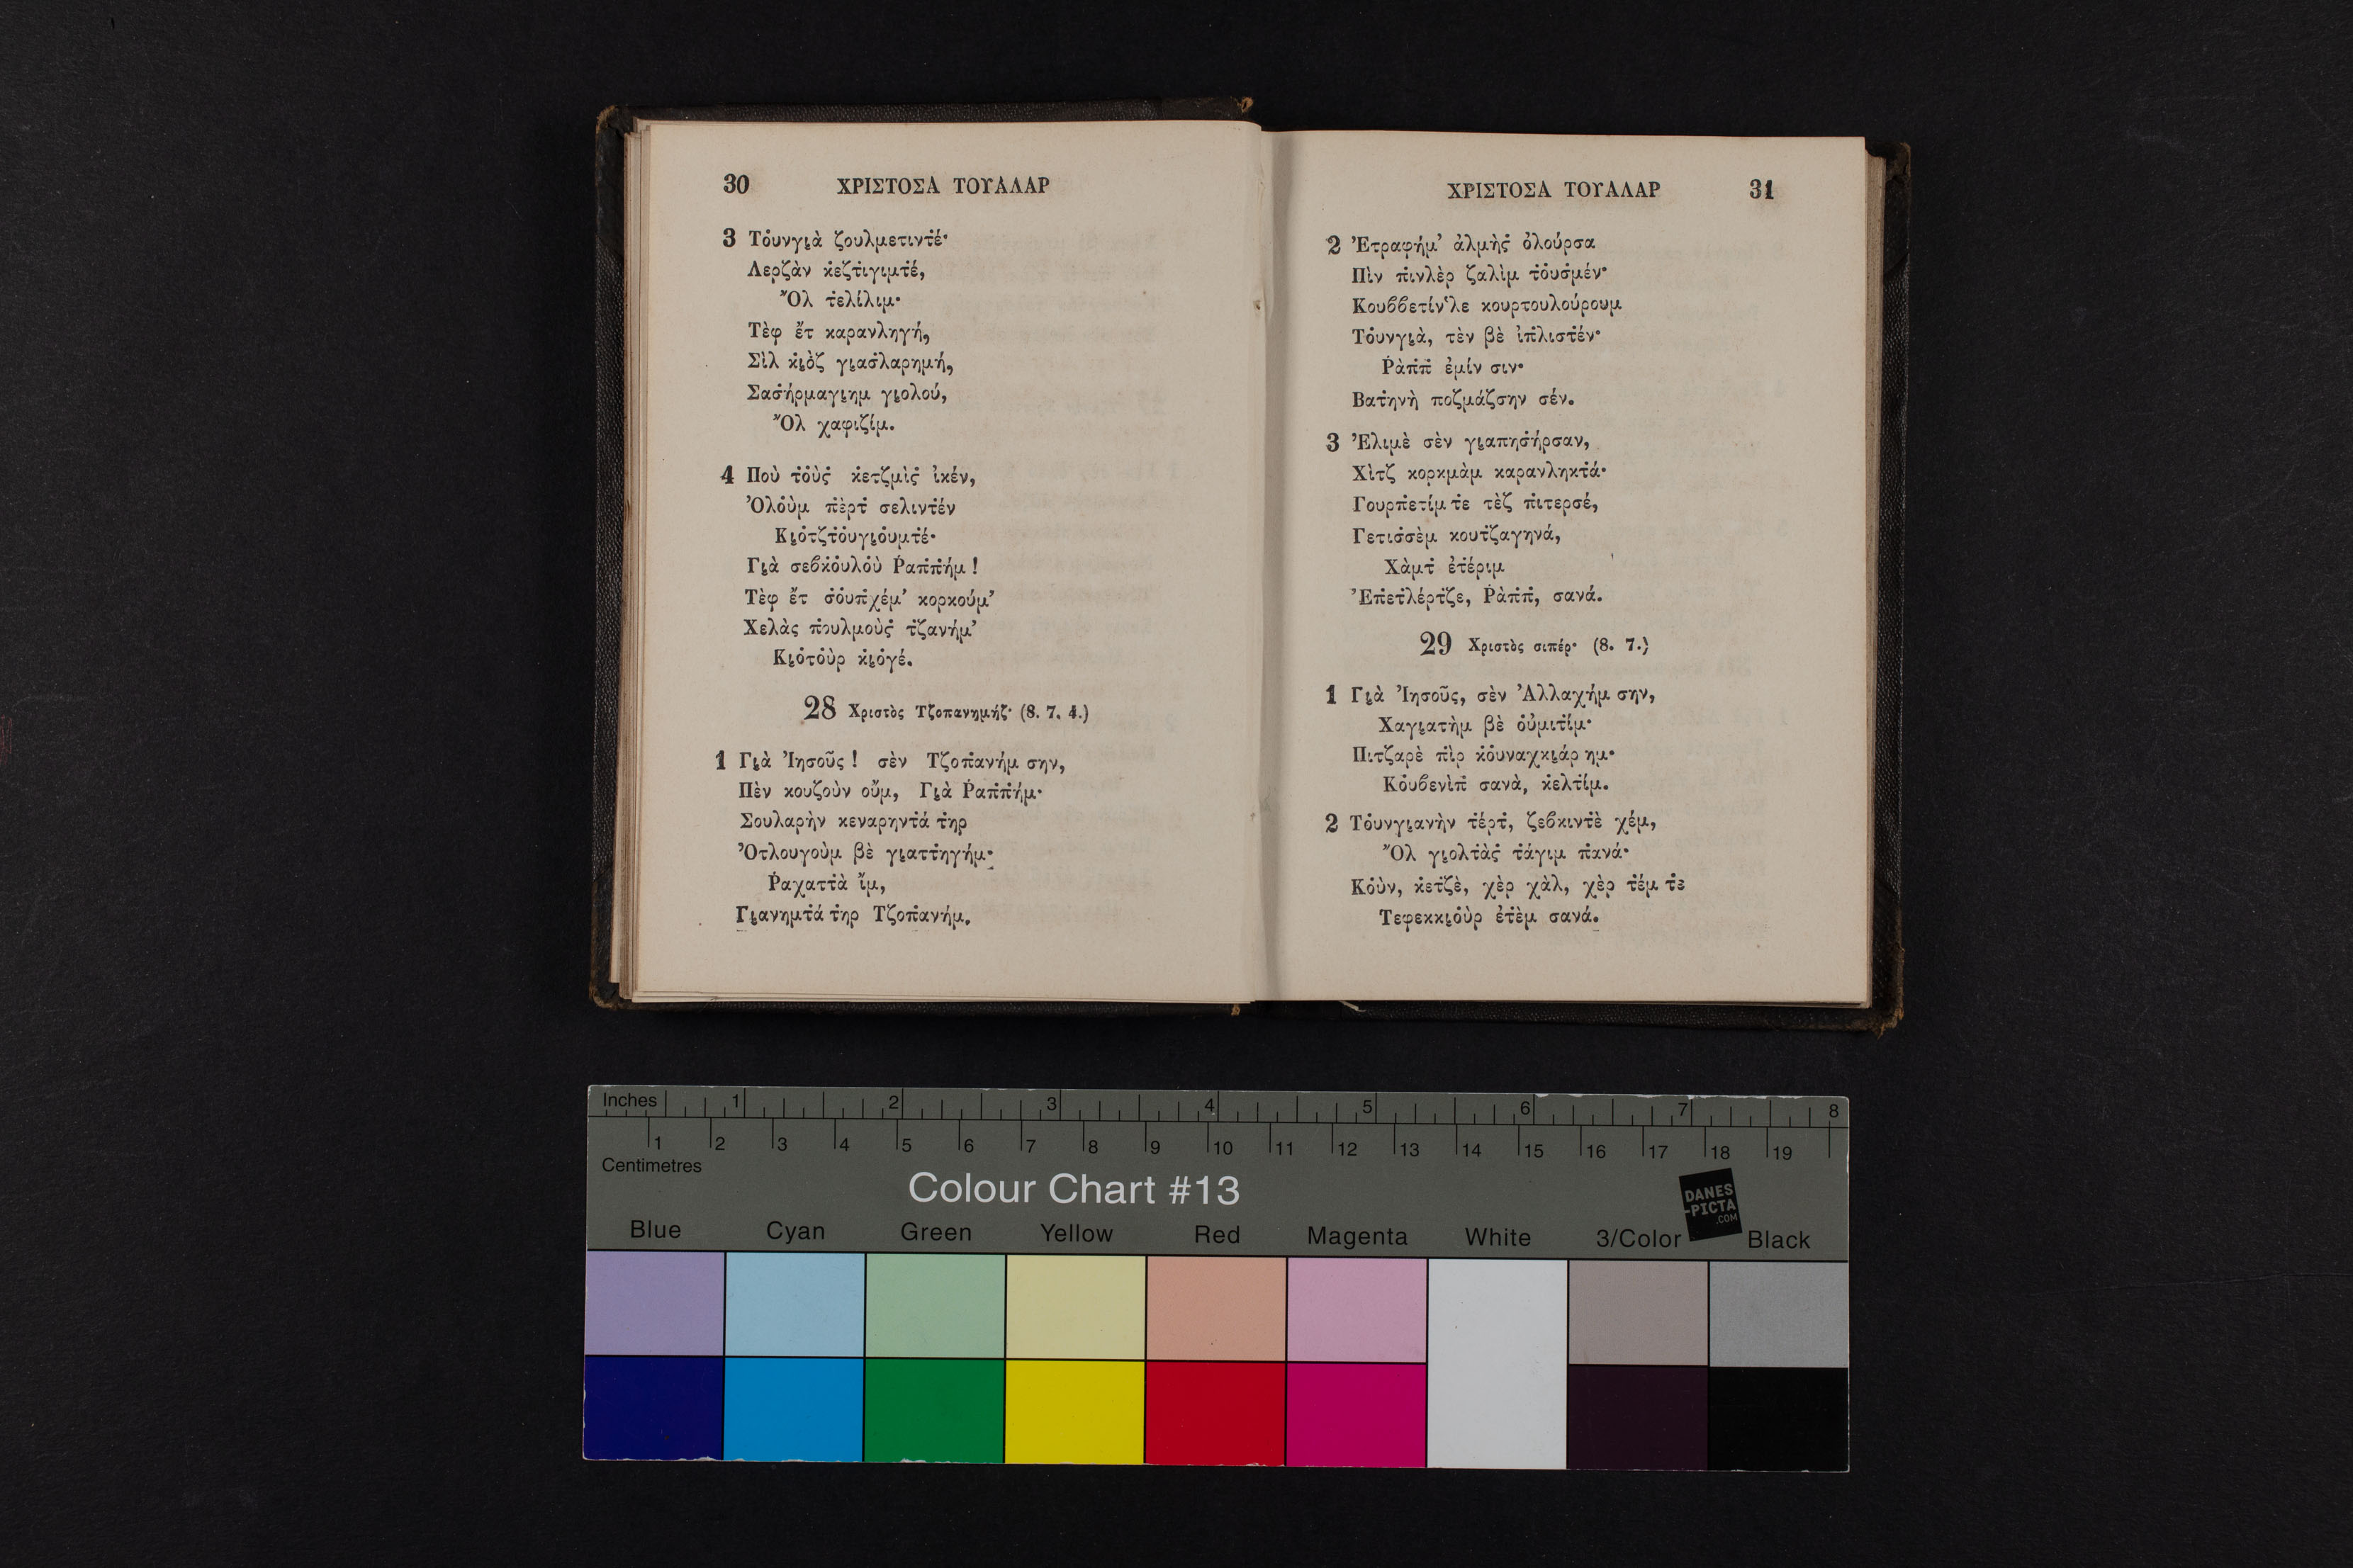 30 ΧΡΙΣΤΟΣΑ ΤΟΥΑΛΑΡ
3 Τὀυνγι̭ὰ ζουλμετιντέ·
Λερζὰν κ̇εζτιγιμτέ,
Ὂλ τ̇ελίλιμ·
Τὲφ ἔτ καρανληγή,
Σὶλ κ̇ι̭ὸζ γι̭ασ̇λαρημή,
Σασ̇ήρμαγι̭ημ γι̭ολού,
Ὂλ χαφιζίμ.
4 Ποὺ τ̇ὀὺς̇ κ̇ετζμὶς̇ ἰκέν,
Ὀλὀὺμ π̇ὲρτ̇ σελιντ̇έν
Κι̭ὀτζτ̇ὀυγι̭ὀυμτ̇έ·
Γι̭ὰ σεβκ̇ὀυλὀὺ Ῥαπ̇π̇ήμ!
Τὲφ ἔτ σ̇ὀυπ̇χέμ’ κορκούμ’
Χελὰς π̇ουλμοὺς̇ τζανήμ’
Κι̭ὀτὀὺρ κ̇ι̭ὀγέ.
28 Χριστὸς Τζοπανημήζ· (8. 7. 4.)
1 Γι̭ὰ Ἰησοῦς! σὲν Τζοπ̇ανήμ σην,
Πὲν κουζοὺν οὔμ, Γι̭ὰ Ῥαπ̇π̇ήμ·
Σουλαρὴν κεναρηντ̇ά τ̇ηρ
Ὀτλουγοὺμ βὲ γι̭αττ̇ηγήμ·
Ῥαχαττ̇ὰ ἴμ,
Γι̭ανημτ̇ά τ̇ηρ Τζοπ̇ανήμ.
ΧΡΙΣΤΟΣΑ ΤΟΥΑΛΑΡ 31
2 Ἐτραφήμ’ ἀλμὴς̇ ὀλούρσα
Πὶν π̇ινλὲρ ζαλὶμ τ̇ὀυσ̇μέν·
Κουββετίν‘λε κουρτουλούρουμ
Τ̇ὀυνγι̭ὰ, τὲν βὲ ἰπ̇λιστ̇έν·
Ῥὰπ̇π̇ ἐμίν σιν·
Βατ̇ηνὴ ποζμάζσην σέν.
3 Ἐλιμὲ σὲν γι̭απησ̇ήρσαν,
Χὶτζ κορκμὰμ καρανληκτ̇ά·
Γουρπ̇ετίμ τ̇ε τὲζ π̇ιτερσέ,
Γετισ̇σὲμ κουτζαγηνά,
Χὰμτ̇ ἐτ̇έριμ
Ἐπ̇ετ̇λέρτζε, Ῥὰπ̇π̇, σανά.
29 Χριστὸς σιπέρ· (8. 7.)
1 Γι̭ὰ Ἰησοῦς, σὲν Ἀλλαχήμ σην,
Χαγι̭ατὴμ βὲ ὀὐμιτ̇ίμ·
Πιτζαρὲ π̇ὶρ κ̇ὀυναχκι̭άρ ημ·
Κ̇ὀυβενὶπ̇ σανὰ, κ̇ελτ̇ίμ.
2 Τ̇ὀυνγι̭ανὴν τ̇έρτ̇, ζεβκιντ̇ὲ χέμ,
Ὂλ γι̭ολτ̇ὰς̇ τ̇άγιμ π̇ανά·
Κ̇ὀὺν, κ̇ετ̇ζὲ, χὲρ χὰλ, χὲρ τ̇έμ τ̇ε
Τεφεκκι̭ὀὺρ ἐτ̇ὲμ σανά.
Inches 1 2 3 4 5 6 7 8
1 2 3 4 5 6 7 8 9 10 11 12 13 14 15 16 17 18 19
Centimetres
Colour Chart #13
DANES
-PICTA
.COM
Blue Cyan Green Yellow Red Magenta White 3/Color Black